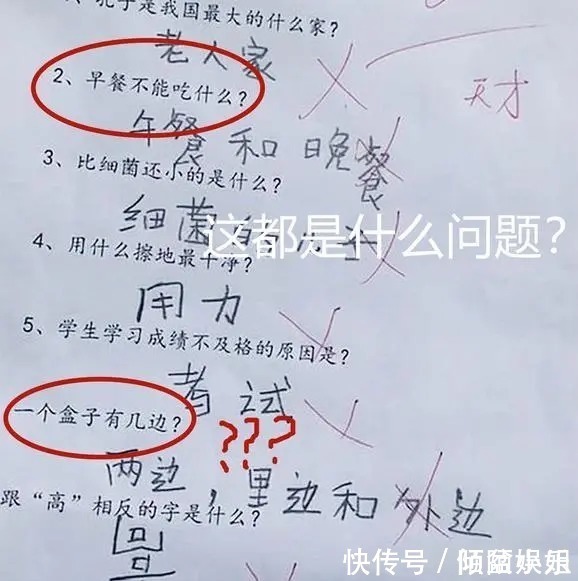 、孔子是我国最大的什么家?
老人家
天才
2、早餐不能吃什么?
午餐和晚餐
3、比细菌还小的是什么?
细菌
这都是什么问题?
4、用什么擦地最干净?
用力
5、学生学习成绩不及格的原因是?
考试
???
一个盒子有几边?
两边,里边和外边
跟“高”相反的字是什么?
快传号 /